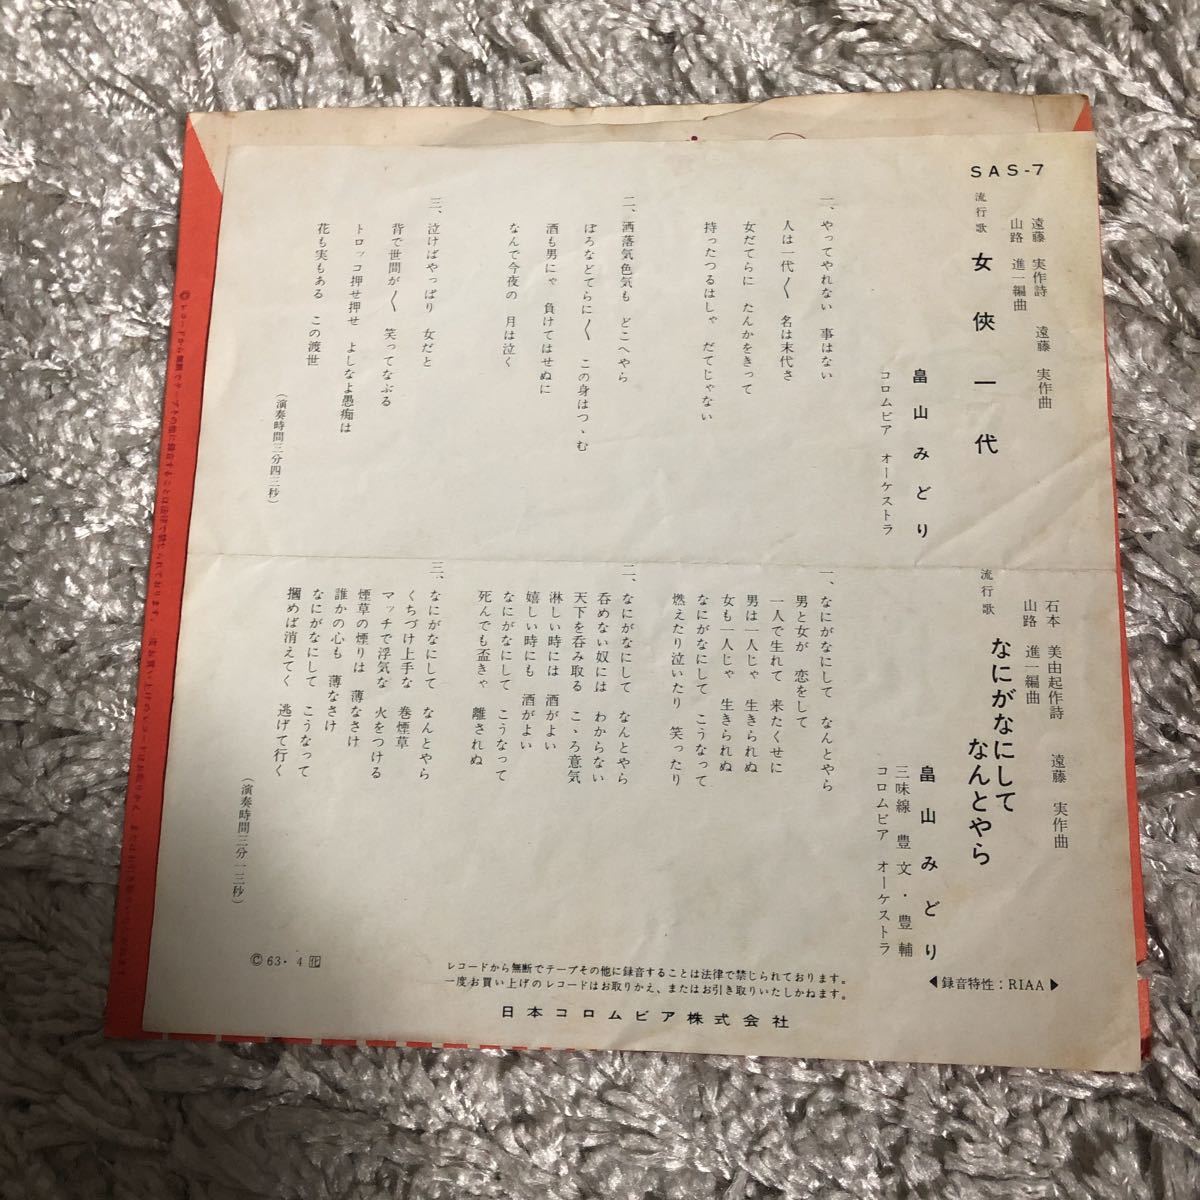 SAS-7
遠藤 実作詩 遠藤 実作曲
山路 進一編曲
流行歌 女侠一代
畠山みどり
コロムビア オーケストラ
一、やってやれない 事はない
人は一代〱 名は末代さ
女だてらに たんかをきって
持ったつるはしゃ だてじゃない
二、洒落気色気も どこへやら
ぼろなどてらに〱 この身はつゝむ
酒も男にゃ 負けてはせぬに
なんで今夜の 月は泣く
三、泣けばやっぱり 女だと
背で世間が〱 笑ってなぶる
トロッコ押せ押せ よしなよ愚痴は
花も実もある この渡世
（演奏時間三分四三秒）
石本 美由起作詩 遠藤 実作曲
山路 進一編曲
流行歌 なにがなにして
なんとやら
畠山みどり
三味線 豊文・豊輔
コロムビア オーケストラ
一、なにがなにして なんとやら
男と女が 恋をして
一人で生れて 来たくせに
男は一人じゃ 生きられぬ
女も一人じゃ 生きられぬ
なにがなにして こうなって
燃えたり泣いたり 笑ったり
二、なにがなにして なんとやら
呑めない奴には わからない
天下を呑み取る こゝろ意気
淋しい時には 酒がよい
嬉しい時にも 酒がよい
なにがなにして こうなって
死んでも盃きゃ 離されぬ
三、なにがなにして なんとやら
くちづけ上手な 巻煙草
マッチで浮気な 火をつける
煙草の煙りは 薄なさけ
誰かの心も 薄なさけ
なにがなにして こうなって
摑めば消えてく 逃げて行く
（演奏時間三分一三秒）
Ⓒ63・4化
レコードから無断でテープその他に録音することは法律で禁じられております。
一度お買い上げのレコードはお取りかえ、またはお引き取りいたしかねます。
◀録音特性：RIAA▶
日本コロムビア株式会社
Ⓒレコードから無断でテープその他に録音することは法律で禁じられております。一度お買い上げのレコードはお取りかえ、またはお引き取りいたしかねます